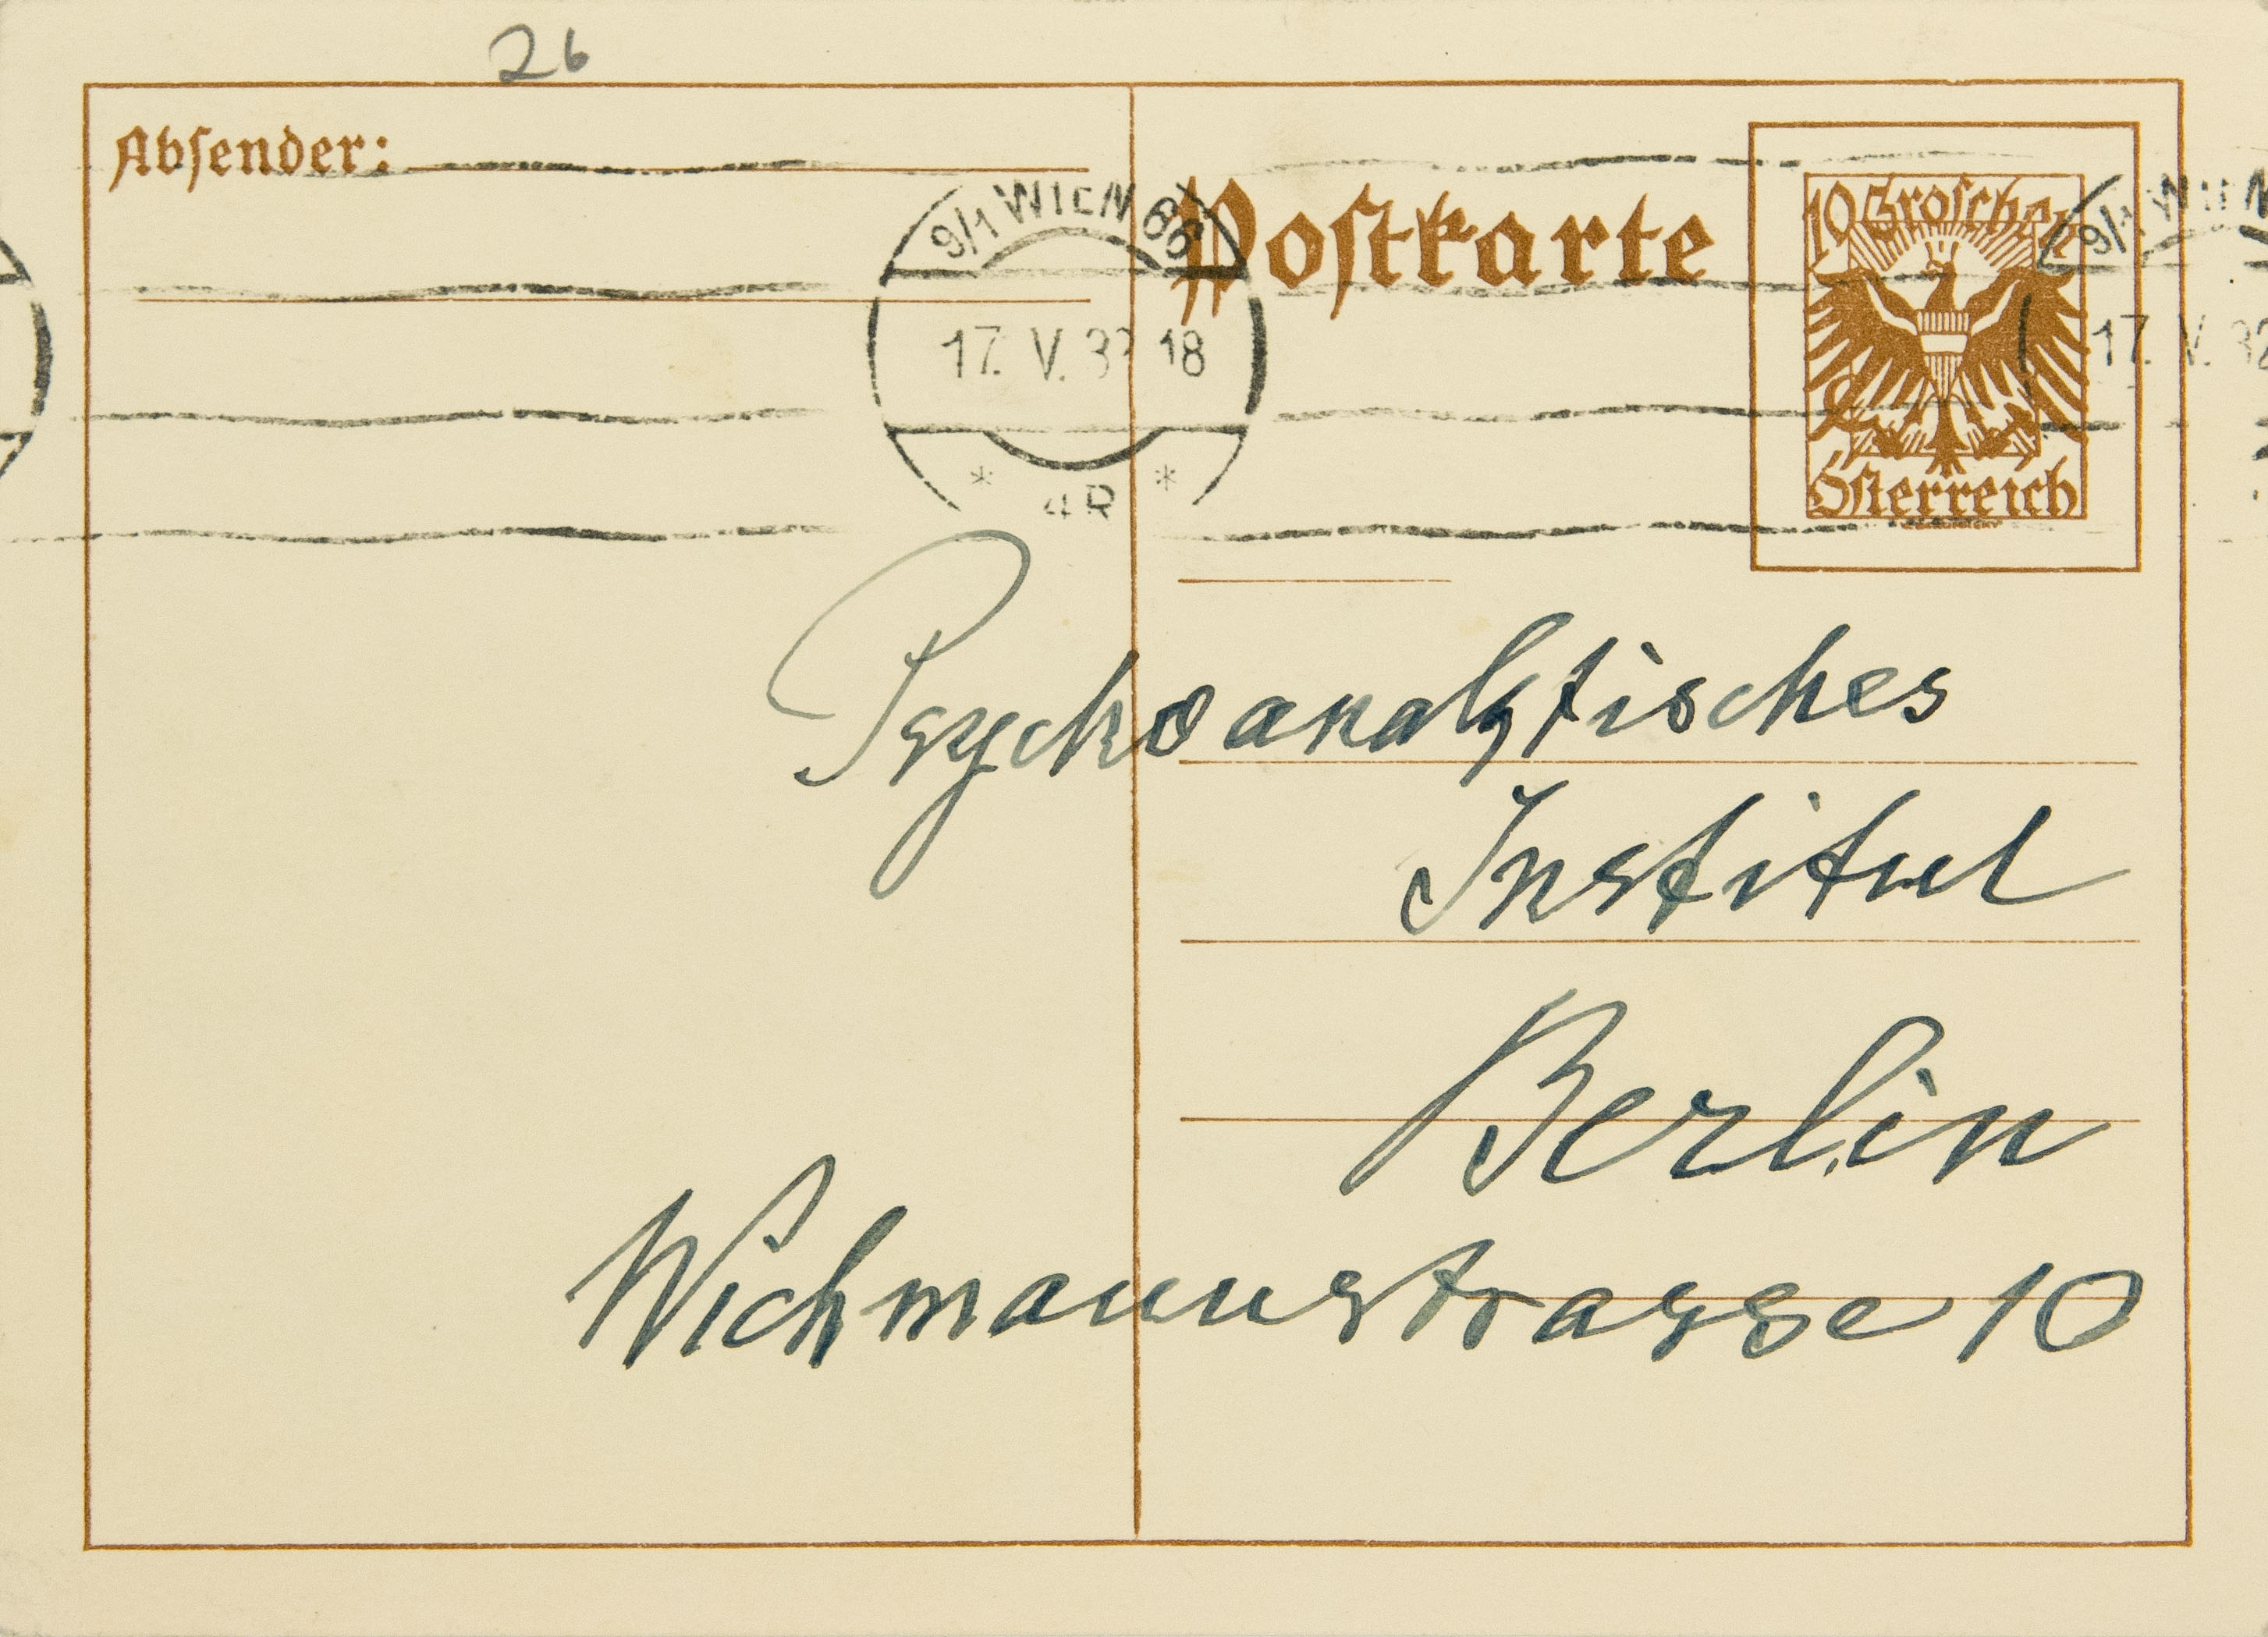 26
Absender:
Postkarte
10 Groschen
Österreich
9/1 WIEN 66
17. V. 32 18
* 4R *
9/1 WIEN
17. V. 32
Psychoanalytisches
Institut
Berlin
Wichmannstrasse 10